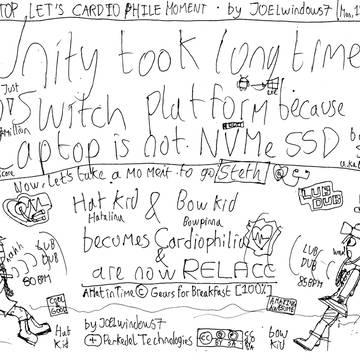 TOP, LET'S CARDIOPHILE MOMENT · by JOELwindows7
Unity took long time
Just
Switch Platform because
Million
laptop is not NVMe SSD
Now, let's take a moment to go Steth!
LUB DUB
Hat Kid & Bow Kid
Hatalina Bowpinna
becomes Cardiophilia
& are now RELACC
LUB/ DUB
80 BPM
LUB/ DUB
85 BPM
A Hat in Time © Gears for Breakfast [100%]
COOL & GOOD
AMAZING AWESOME
Hat Kid
by JOELwindows7
+ Perkedel Technologies
CC BY SA
Bow Kid